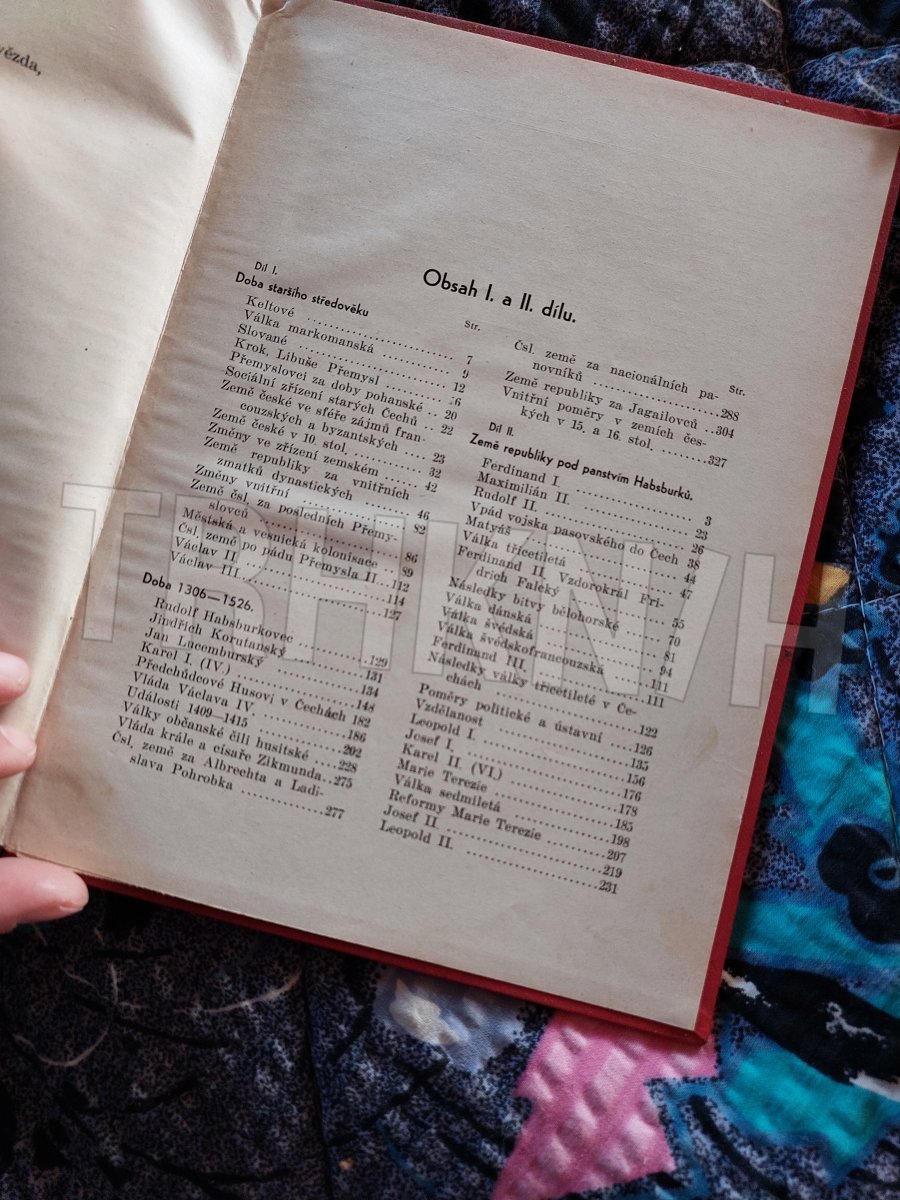 Obsah I. a II. dílu.
Díl I.
Doba staršího středověku
Str.
Keltové ........................ 7
Válka markomanská ............ 9
Slované ........................ 12
Krok, Libuše Přemysl ......... 16
Přemyslovci za doby pohanské .. 20
Sociální zřízení starých Čechů .. 22
Země české ve sféře zájmů fran-
couzských a byzantských .... 23
Země české v 10. stol. .......... 32
Změny ve zřízení zemském .... 42
Země republiky za vnitřních
zmatků dynastických ........ 46
Změny vnitřní .................. 82
Země čsl. za posledních Přemy-
slovců ........................ 86
Městská a vesnická kolonisace .. 89
Čsl. země po pádu Přemysla II. ..112
Václav II. ......................114
Václav III. ......................127
Doba 1306—1526.
Rudolf Habsburkovec ............129
Jindřich Korutanský ............131
Jan Lucemburský ................134
Karel I. (IV.) ..................148
Předchůdcové Husovi v Čechách 182
Vláda Václava IV. ..............186
Události 1409—1415 ............202
Války občanské čili husitské ....228
Vláda krále a císaře Zikmunda..275
Čsl. země za Albrechta a Ladi-
slava Pohrobka ..............277
Str.
Čsl. země za nacionálních pa-
novníků ......................288
Země republiky za Jagailovců ..304
Vnitřní poměry v zemích čes-
kých v 15. a 16. stol. ........327
Díl II.
Země republiky pod panstvím Habsburků.
Ferdinand I. .................... 3
Maximilián II. .................. 23
Rudolf II. ...................... 26
Vpád vojska pasovského do Čech 38
Matyáš .......................... 44
Válka třicetiletá ................ 47
Ferdinand II. Vzdorokrál Fri-
drich Falcký .................. 55
Následky bitvy bělohorské ...... 70
Válka dánská .................... 81
Válka švédská .................. 94
Válka švédskofrancouzská ......111
Ferdinand III. ..................111
Následky války třicetileté v Če-
chách ........................122
Poměry politické a ústavní ....126
Vzdělanost ......................135
Leopold I. ......................156
Josef I. ........................176
Karel II. (VI.) ..................178
Marie Terezie ..................185
Válka sedmiletá ................198
Reformy Marie Terezie ........207
Josef II. ........................219
Leopold II. ....................231
TRHKNIH